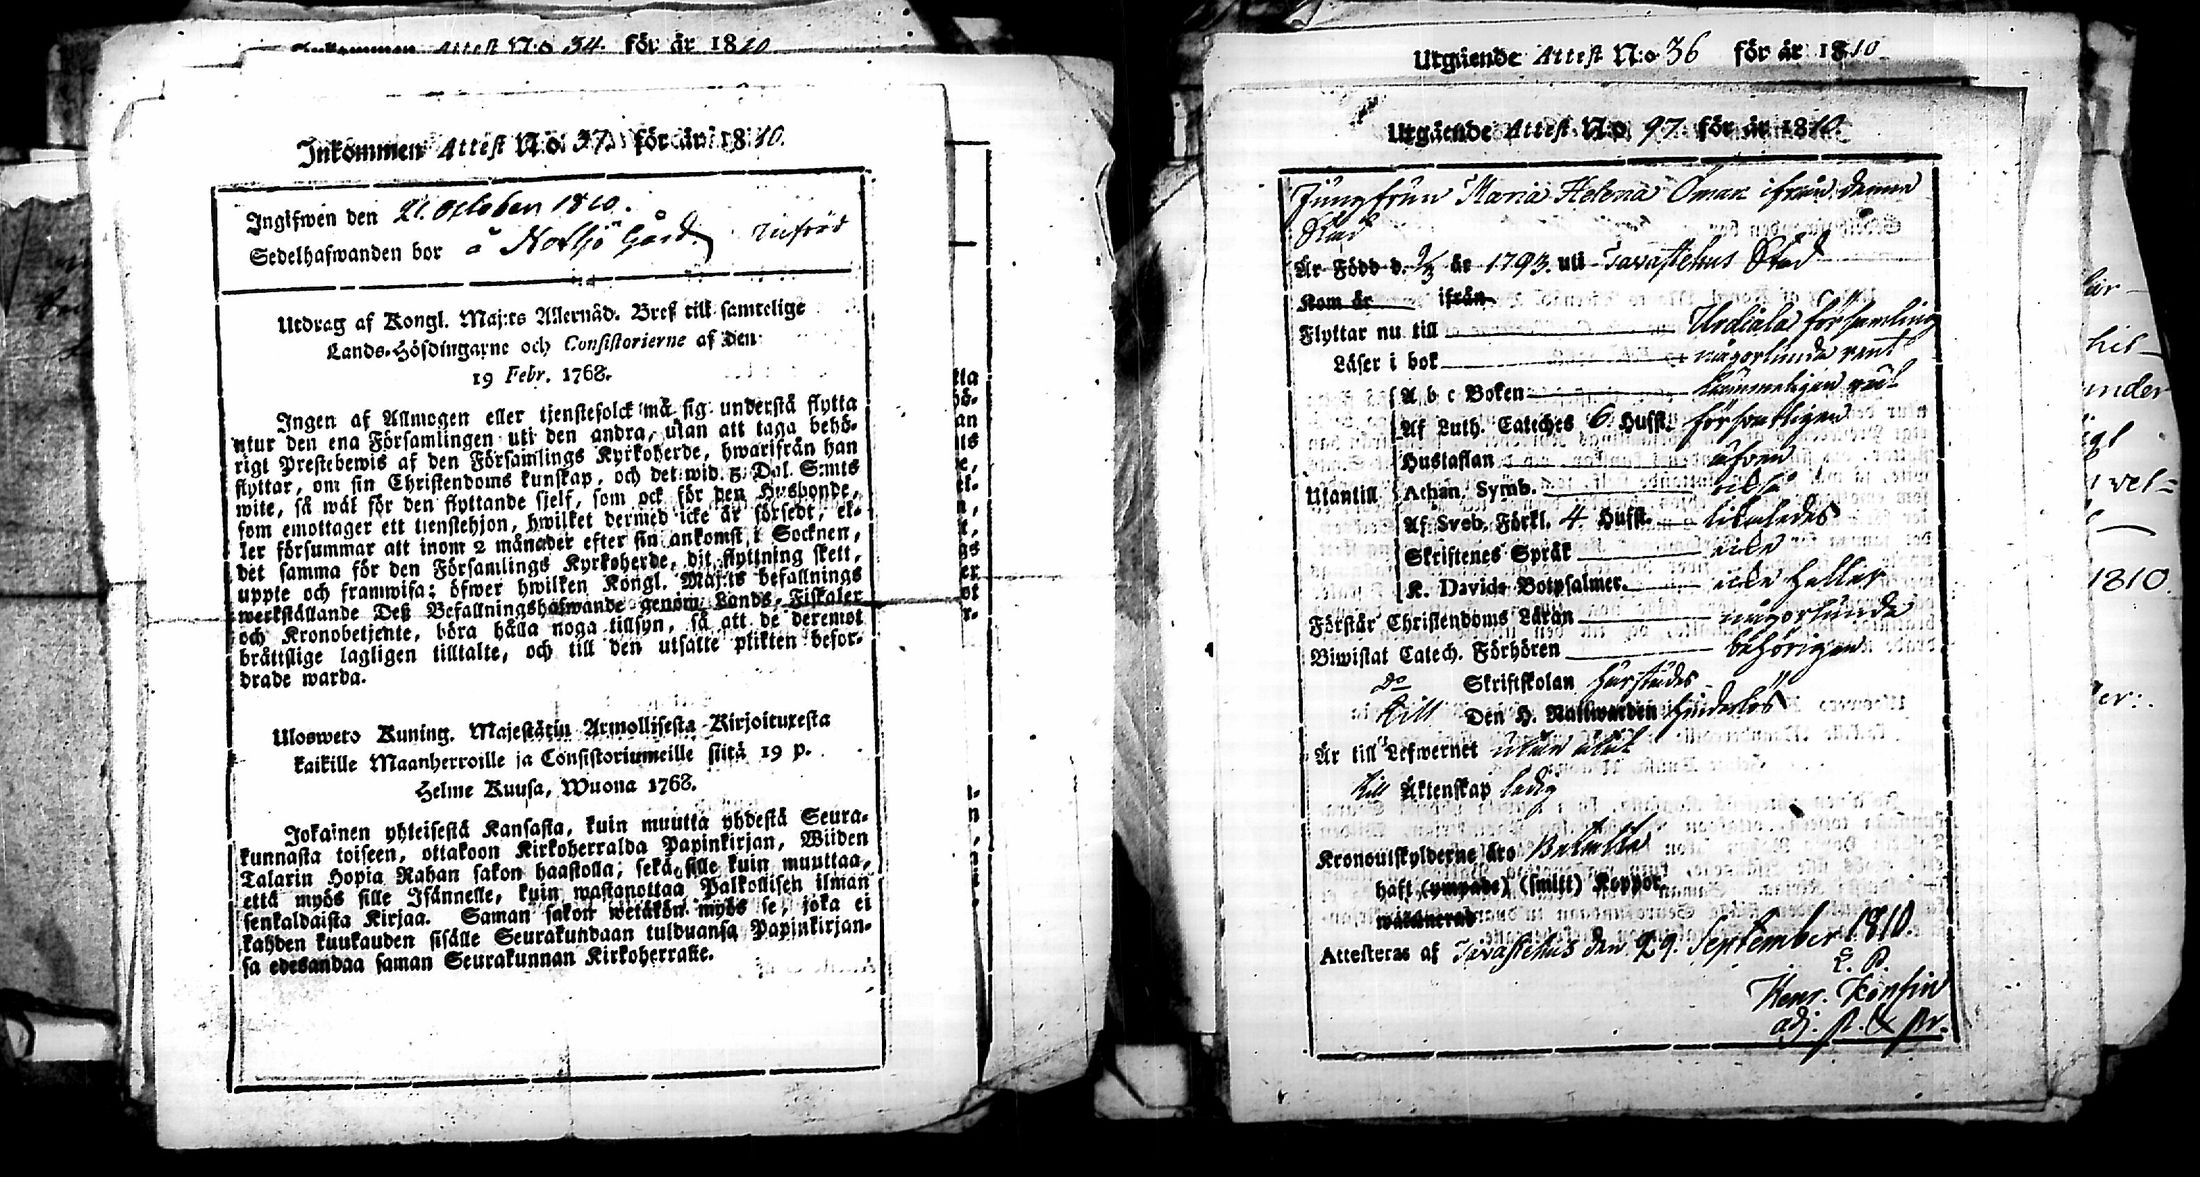 Inkommen Attest N:o 34. för år 1810
Inkommen Attest N:o 37. för år 1810.
Ingifwen den 21. October 1810.
Sedelhafwanden bor å Notsjö Gård. Införd
Utdrag af Kongl. Maj:ts Allernåd. Bref till samtelige
Lands-Höfdingarne och Consistorierne af den
19 Febr. 1768.
Ingen af Allmogen eller tjenstefolck må sig understå flytta
utur den ena Församlingen uti den andra, utan att taga behö-
rigt Prestebewis af den Församlings Kyrkoherde, hwarifrån han
flyttar, om sin Christendoms kunskap, och det wid 5 Dal. S:mts
wite, så wäl för den flyttande sjelf, som ock för den Husbonde,
som emottager ett tienstehjon, hwilket dermed icke är försedt, el-
ler försummar att inom 2 månader efter sin ankomst i Socknen,
det samma för den Församlings Kyrkoherde, dit flyttning skett,
uppte och framwisa; öfwer hwilken Kongl. Maj:ts befallnings
werkställande Deß Befallningshafwande genom Lands-Fiskaler
och Kronobetjente, böra hålla noga tillsyn, så att de deremot
bråttslige lagligen tilltalte, och till den utsatte plikten befor-
drade warda.
Uloswето Kuning. Majestätin Armollisesta Kirjoituxesta
kaikille Maanherroille ja Consistoriumeille siitä 19 p.
Helme Kuusa, Wuona 1768.
Jokainen yhteisestä Kansasta, kuin muutta yhdestä Seura-
kunnasta toiseen, ottakoon Kirkoherralda Papinkirjan, Wiiden
Talarin Hopia Rahan sakon haastolla; sekä sille kuin muuttaa,
että myös sille Isännelle, kuin wastanottaa Palkollisen ilman
senkaldaista Kirjaa. Saman sakon wetäkön myös se, joka ei
kahden kuukauden sisälle Seurakundaan tulduansa Papinkirjan-
sa edesandaa saman Seurakunnan Kirkoherralle.
Utgående Attest N:o 36 för år 1810
Utgående Attest N:o 97. för år 1810.
Jungfrun Maria Helena Öman ifrån denna
Stad
Är Född d. år 1793. uti Tavastehus Stad
Kom år ifrån
Flyttar nu till Urdiala församling
Läser i bok någorlunda rent
A b c Boken
Af Luth. Cateches 6 Hufst. försvarligen
Hustaflan äfven
Utantill Athan. Symb. också
Af Sveb. Förkl. 4 Hufst. likaledes
Skriftenes Språk icke
K. Davids Botpsalmer. icke heller
Förstår Christendoms Läran någorlunda
Biwistat Catech. Förhören behörigen
Do Skriftskolan härstädes
till Den H. Nattwarden hinderlös
Är till Lefwernet utan
till Äktenskap ledig
Kronoutskylderne äro Betalta
haft (ympade) (smitt) Koppor
Attesteras af Tavastehus den 29. September 1810.
Henr.
adj.
1810.